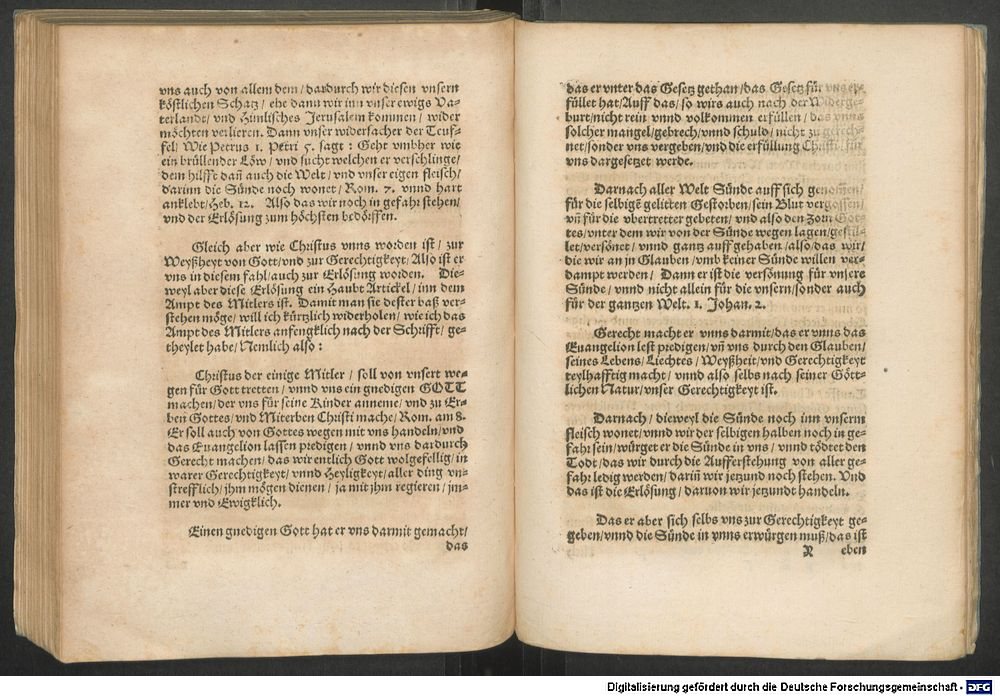 vns auch von allem dem / dardurch wir diesen vnsern
köstlichen Schatz / ehe dann wir inn vnser ewigs Va-
terlandt / vnd Himlisches Jerusalem kommen / wider
möchten verlieren. Dann vnser widersacher der Teuf-
fel / Wie Petrus 1. Petri 5. sagt : Geht vmbher wie
ein brüllender Löw / vnd sucht welchen er verschlinge /
dem hilfft dañ auch die Welt / vnd vnser eigen fleisch /
darinn die Sünde noch wonet / Rom. 7. vnnd hart
anklebt / Heb. 12. Also das wir noch in gefahr stehen /
vnd der Erlösung zum höchsten bedörffen.
Gleich aber wie Christus vnns worden ist / zur
Weyßheyt von Gott / vnd zur Gerechtigkeyt / Also ist er
vns in diesem fahl / auch zur Erlösung worden. Die-
weyl aber diese Erlösung ein Haubt Artickel / inn dem
Ampt des Mitlers ist. Damit man sie dester baß ver-
stehen möge / will ich kürtzlich widerholen / wie ich das
Ampt des Mitlers anfengklich nach der Schrifft / ge-
theylet habe / Nemlich also :
Christus der einige Mitler / soll von vnsert we-
gen für Gott tretten / vnnd vns ein gnedigen GOTT
machen / der vns für seine Kinder anneme / vnd zu Er-
ben Gottes / vnd Miterben Christi mache / Rom. am 8.
Er soll auch von Gottes wegen mit vns handeln / vnd
das Euangelion lassen predigen / vnnd vns dardurch
Gerecht machen / das wir entlich Gott wolgefellig / in
warer Gerechtigkeyt / vnnd Heyligkeyt / aller ding vn-
strefflich / jhm mögen dienen / ja mit jhm regieren / jm-
mer vnd Ewigklich.
Einen gnedigen Gott hat er vns darmit gemacht /
das
das er vnter das Gesetz gethan / das Gesetz für vns er-
füllet hat / Auff das / so wirs auch nach der Widerge-
burt / nicht rein vnnd volkommen erfüllen / das vnns
solcher mangel / gebrech / vnnd schuld / nicht zu gerech-
net / sonder vns vergeben / vnd die erfüllung Christi / für
vns dargesetzet werde.
Darnach aller Welt Sünde auff sich genom̃en /
für die selbigẽ gelitten Gestorben / sein Blut vergossen /
vñ für die vbertretter gebeten / vnd also den Zorn Got-
tes / vnter dem wir von der Sünde wegen lagen / gestil-
let / versönet / vnnd gantz auffgehaben / also / das wir /
die wir an jn Glauben / vmb keiner Sünde willen ver-
dampt werden / Dann er ist die versönung für vnsere
Sünde / vnnd nicht allein für die vnsern / sonder auch
für der gantzen Welt. 1. Johan. 2.
Gerecht macht er vnns darmit / das er vnns das
Euangelion lest predigen / vñ vns durch den Glauben /
seines Lebens / Liechtes / Weyßheit / vnd Gerechtigkeyt
teylhafftig macht / vnnd also selbs nach seiner Gött-
lichen Natur / vnser Gerechtigkeyt ist.
Darnach / dieweyl die Sünde noch inn vnserm
fleisch wonet / vnnd wir der selbigen halben noch in ge-
fahr sein / würget er die Sünde in vns / vnnd tödtet den
Todt / das wir durch die Aufferstehung von aller ge-
fahr ledig werden / dariñ wir jetzund noch stehen. Vnd
das ist die Erlösung / daruon wir jetzundt handeln.
Das er aber sich selbs vns zur Gerechtigkeyt ge-
geben / vnnd die Sünde in vnns erwürgen muß / das ist
N eben
Digitalisierung gefördert durch die Deutsche Forschungsgemeinschaft - DFG